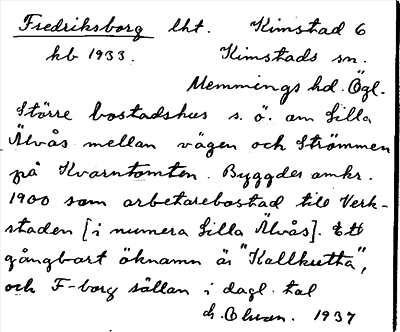 Fredriksborg lht. Kimstad 6
kb 1933. Kimstads sn.
Memmings hd. Ögl.
Större bostadshus s. ö. om Lilla
Älvås mellan vägen och Strömmen
på Kvarntomten. Byggdes omkr.
1900 som arbetarebostad till Verk-
staden [i numera Lilla Älvås]. Ett
gångbart öknamn är "Kallkutta",
och F-borg sällan i dagl. tal
1937